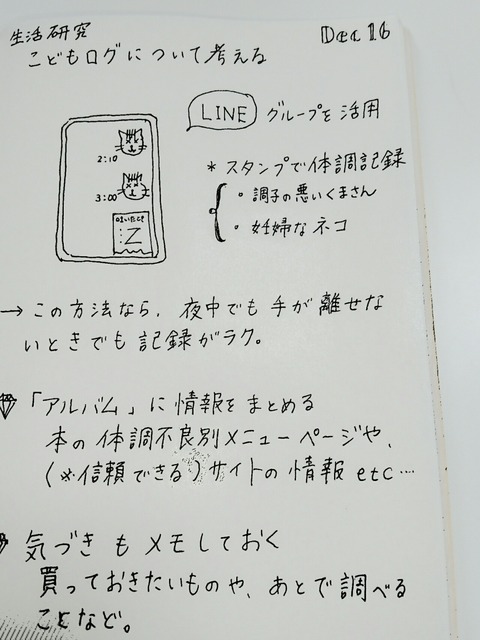 生活研究
Dec 16
こどもログについて考える
LINE グループを活用
2:10
3:00
Z
* スタンプで体調記録
・調子の悪いくまさん
・妊婦なネコ
→ この方法なら、夜中でも手が離せな
いときでも記録がラク。
「アルバム」に情報をまとめる
本の体調不良別メニューページや、
(※信頼できる)サイトの情報 etc…
気づきもメモしておく
買っておきたいものや、あとで調べる
ことなど。